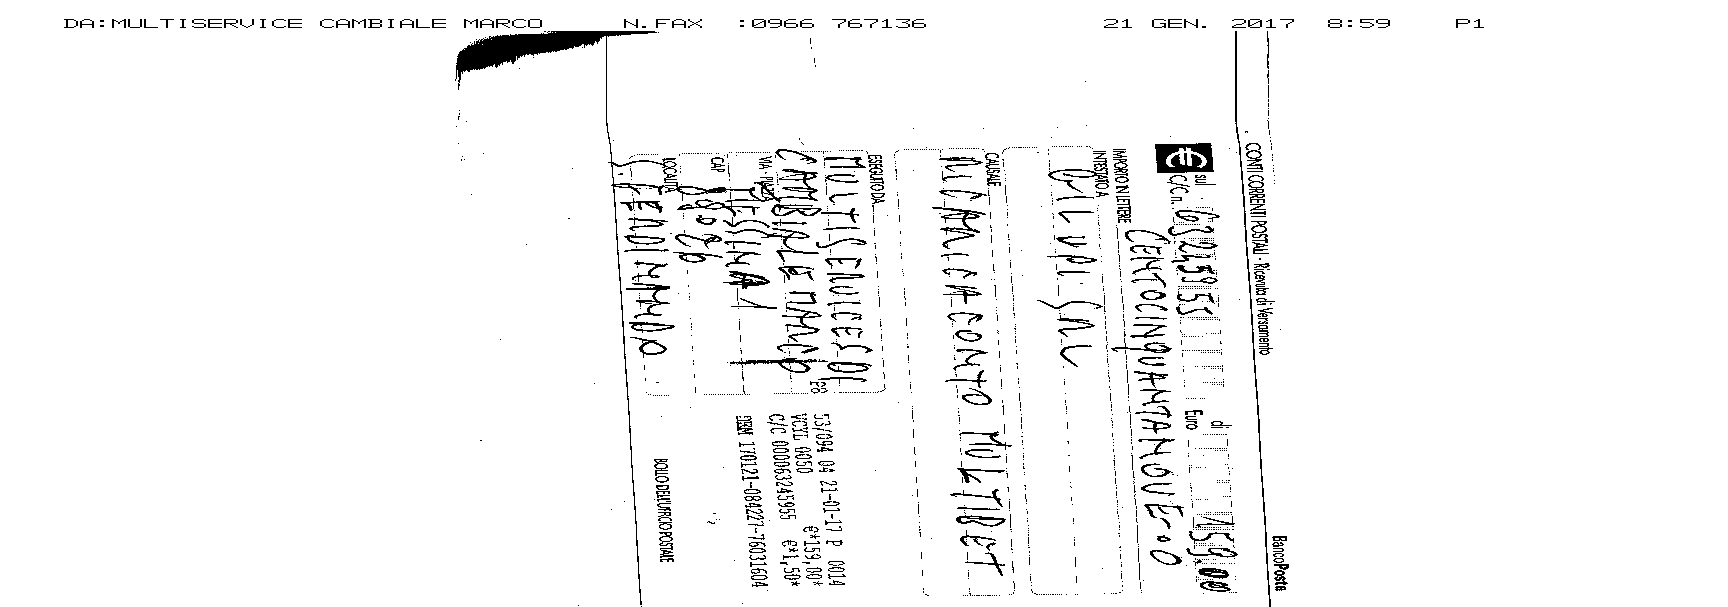 DA:MULTISERVICE CAMBIALE MARCO N.FAX :0966 767136 21 GEN. 2017 8:59 P1
CONTI CORRENTI POSTALI - Ricevuta di Versamento BancoPosta
€ sul C/C n. 63245955 di Euro 159,00
IMPORTO IN LETTERE CENTOCINQUANTANOVE-00
INTESTATO A
BILUPI SRL
CAUSALE
RICARICA CONTO MULTIBET
ESEGUITO DA
MULTISERVICES DI
CAMBIALE MARCO
VIA - PIAZZA MESSINA 1
CAP
LOCALITÀ
S. FERDINANDO
53/094 04 21-01-17 P 0014
VCYL 0050 €*159,00*
C/C 000063245955 €*1,50*
BOLLO DELL'UFFICIO POSTALE